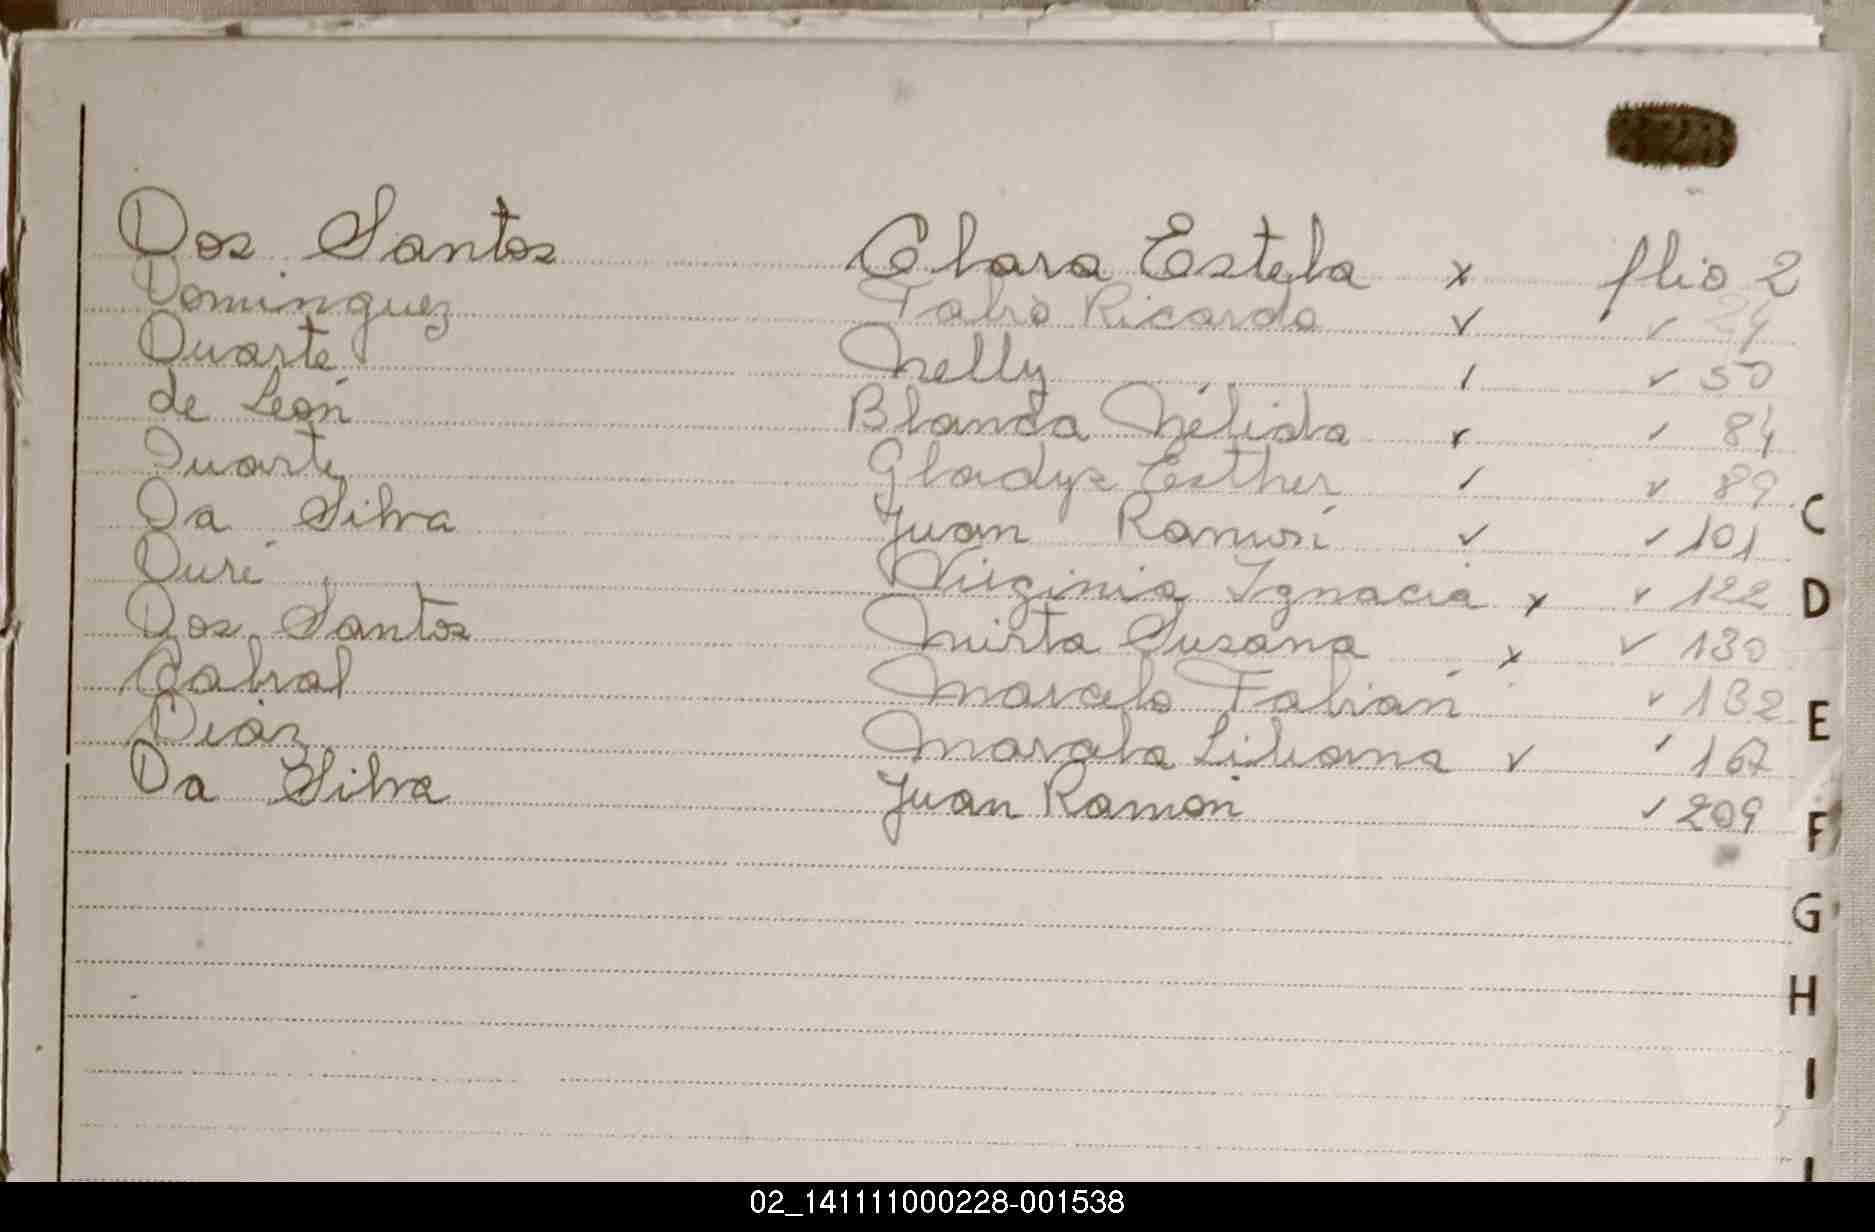 Dos Santos Clara Estela x flio 2
Dominguez Fabio Ricardo ✓ ✓ 24
Duarte Nelly / ✓ 50
de León Blanca Nélida ✓ ✓ 84
Duarte Gladys Esther / ✓ 89
Da Silva Juan Ramón ✓ ✓ 101
Duré Virginia Ignacia x ✓ 122
Dos Santos Mirta Susana x ✓ 130
Cabral Marcelo Fabián ✓ 132
Diáz Marcela Liliana ✓ ✓ 167
Da Silva Juan Ramón ✓ 209
C
D
E
F
G
H
I
02_141111000228-001538